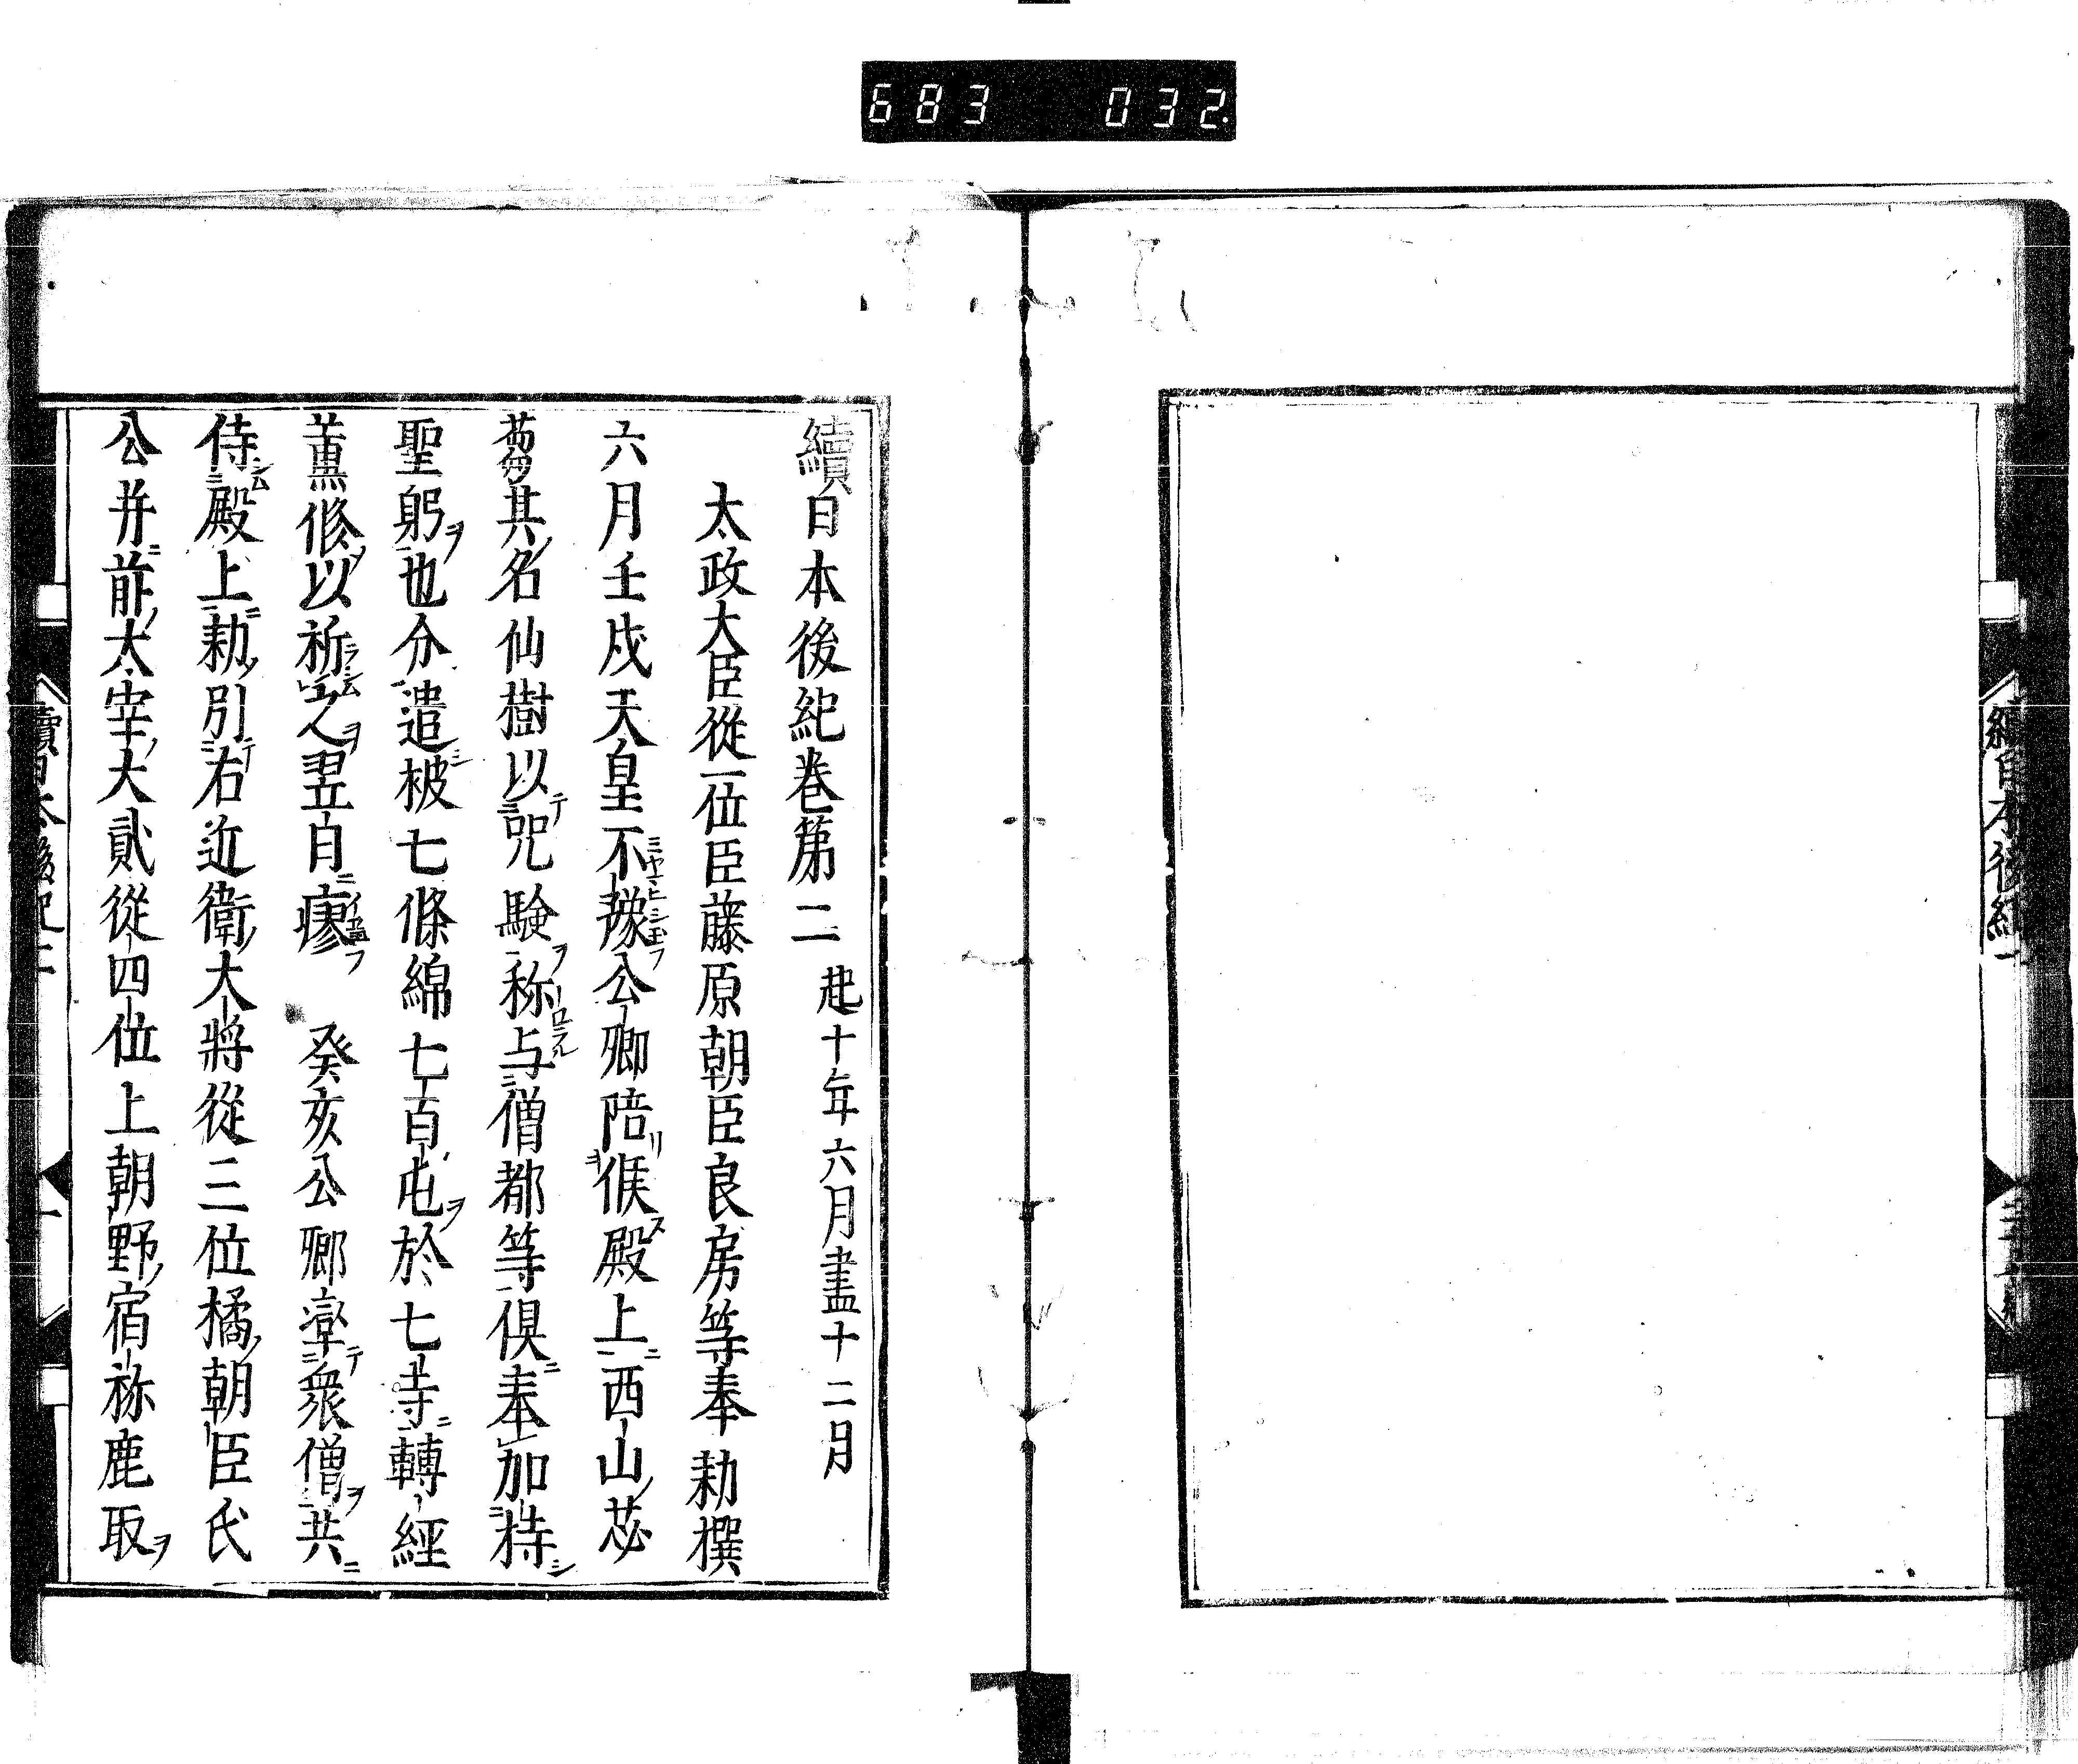 683 032
續日本後紀卷第二 起十年六月盡十二月
太政大臣從一位臣藤原朝臣良房等奉勅撰
六月壬戌天皇不豫公卿陪候殿上西山苾
蒭其名仙樹以咒驗称与僧都等俱奉加持
聖躬也分遣被七條綿七百屯於七寺轉經
薫修以祈之翌自瘳 癸亥公卿率衆僧共
侍殿上勅引右近衛大將從三位橘朝臣氏
公并前太宰大貳從四位上朝野宿祢鹿取
續日本後紀二 一
續日本後紀一